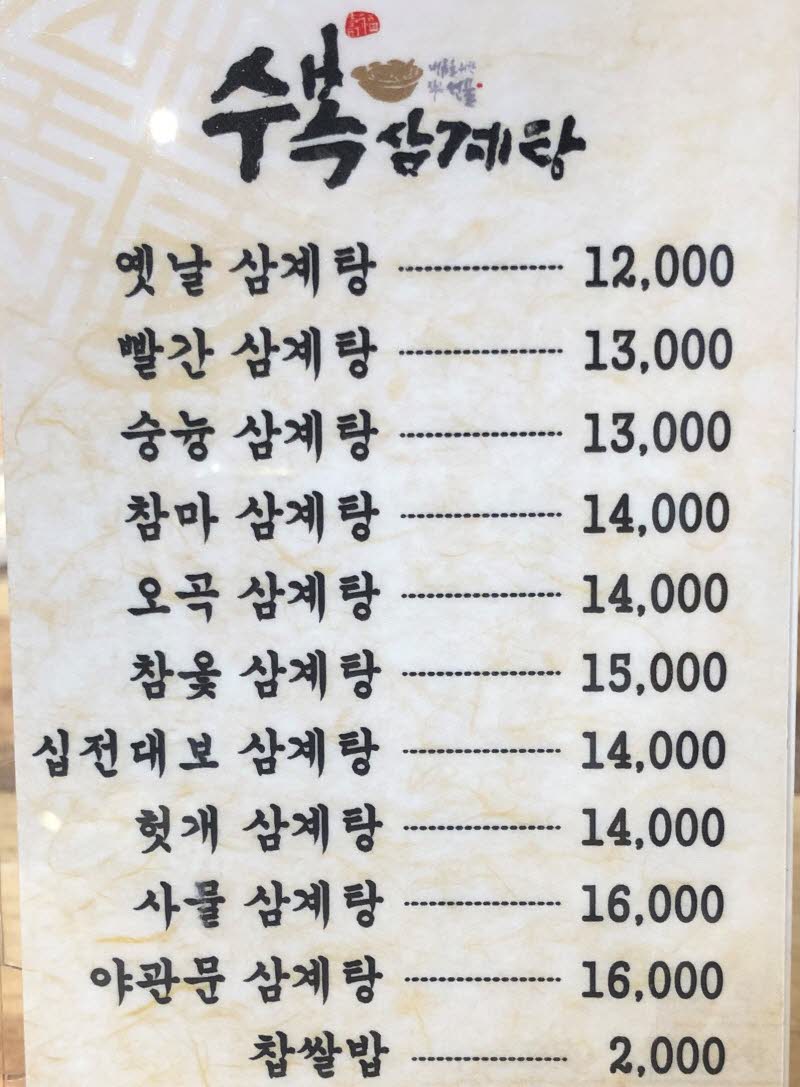 수복 삼계탕
옛날 삼계탕 12,000
빨간 삼계탕 13,000
숭늉 삼계탕 13,000
참마 삼계탕 14,000
오곡 삼계탕 14,000
참옻 삼계탕 15,000
십전대보 삼계탕 14,000
헛개 삼계탕 14,000
사물 삼계탕 16,000
야관문 삼계탕 16,000
찹쌀밥 2,000